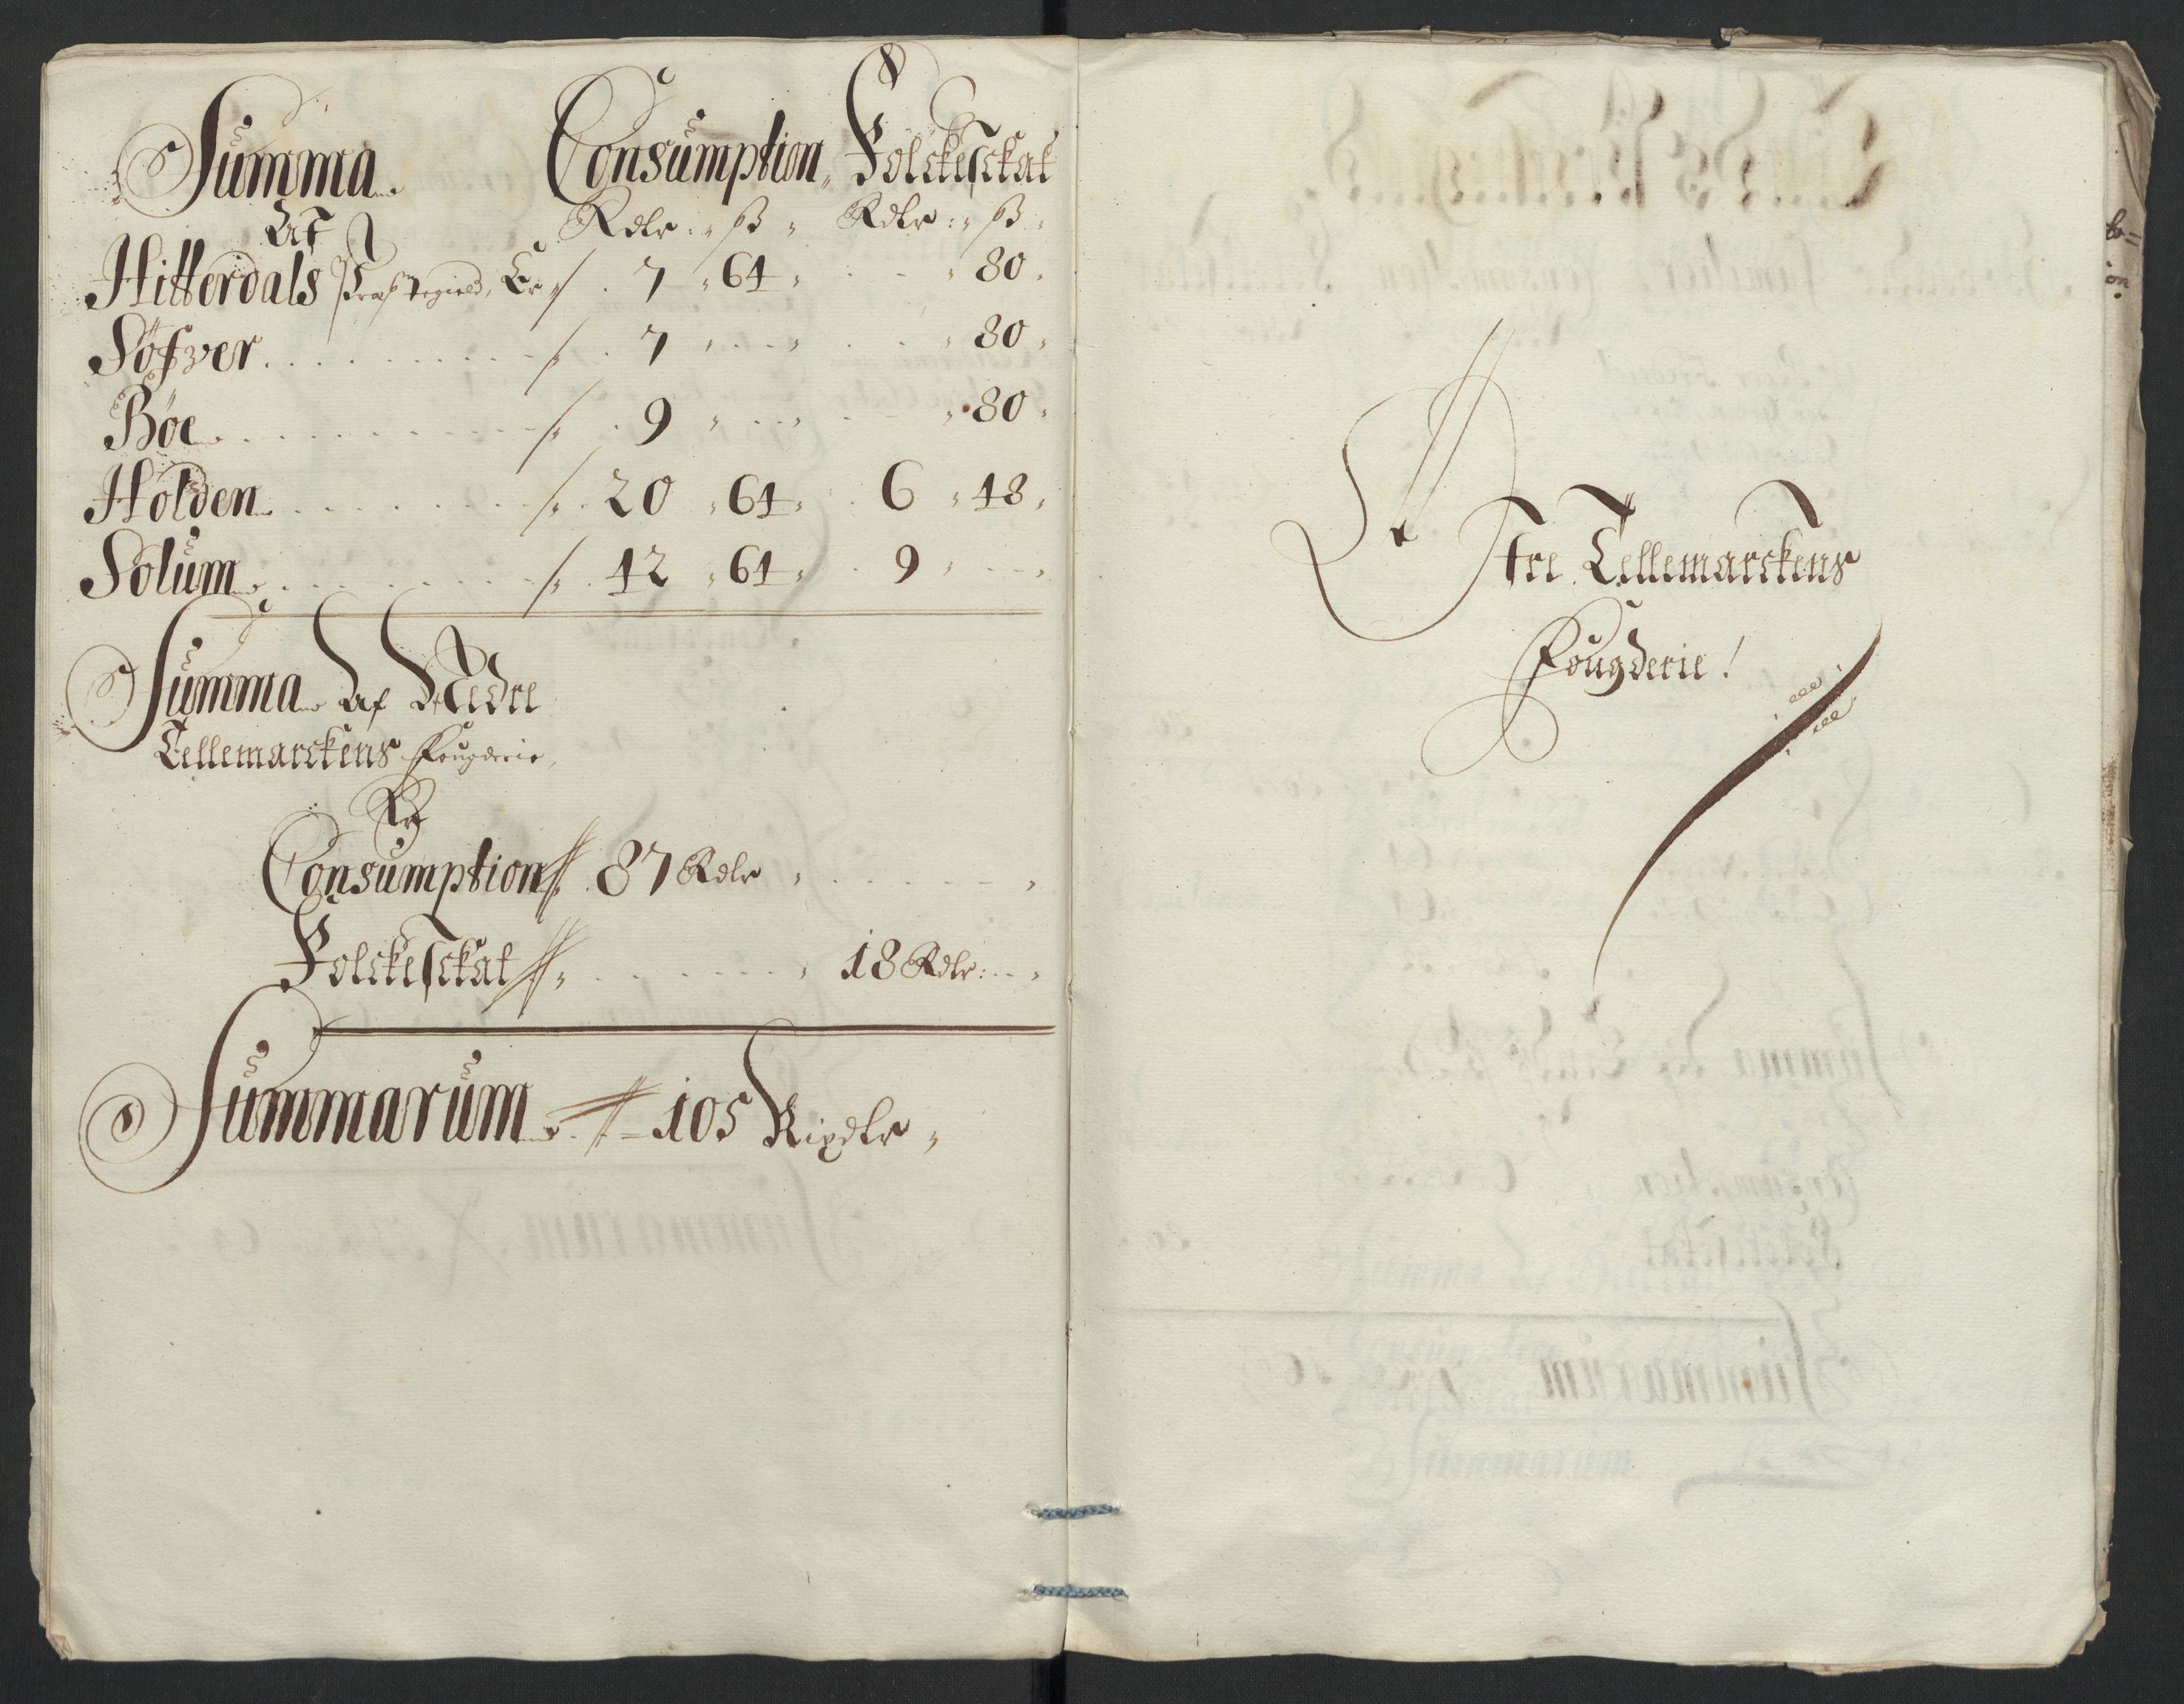 Summa Consumption Folckeskat
Af Rdlr: ß Rdlr: ß
Hitterdals Præstegield, Er 7 64 80
Söfver 7 80
Böe 9 80
Holden 20 64 6 48
Solum 42 64 9
Summa Af Nedre
Tellemarckens Fougderie
Er
Consumption 87 Rdlr
Folckeskat 18 Rdlr:
Summarum 105 Rixdlr
Øfre Tellemarckens
Fougderie!